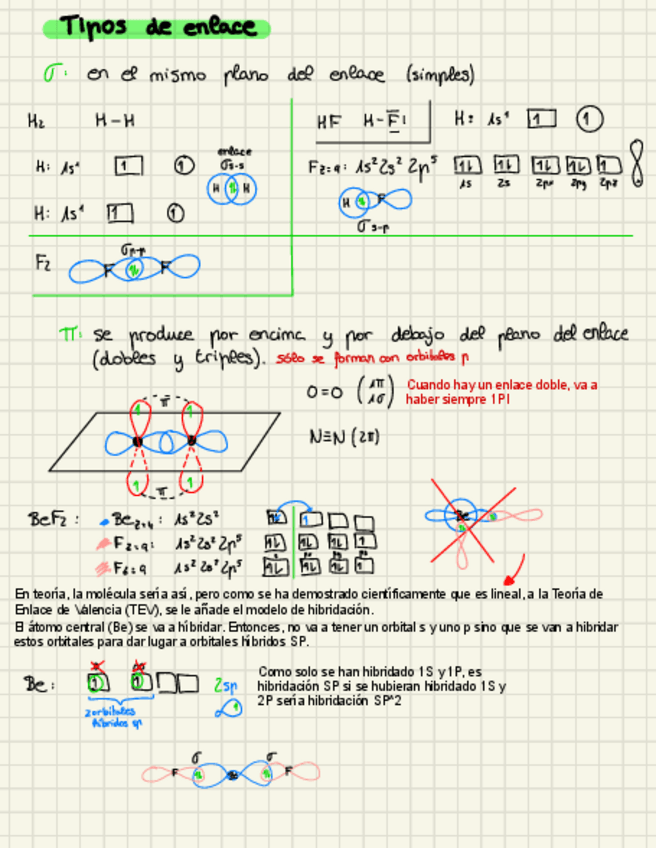 Tipos de enlace
σ: en el mismo plano del enlace (simples)
H₂ H-H
H: 1s¹ 1 1
enlace
σs-s
H H
H: 1s¹ 1 1
HF H-F H: 1s¹ 1 1
F z=9: 1s² 2s² 2p⁵
1s 2s 2px 2py 2pz
H F
σ s-p
F₂
σp-p
F F
π: se produce por encima y por debajo del plano del enlace
(dobles y triples). sólo se forman con orbitales p
O=O (1π 1σ)
Cuando hay un enlace doble, va a
haber siempre 1PI
N≡N (2π)
π
1 1
1 1
π
BeF₂: Be z=4: 1s² 2s²
F z=9: 1s² 2s² 2p⁵
F 1s² 2s² 2p⁵
Be
En teoría, la molécula sería así, pero como se ha demostrado científicamente que es lineal, a la Teoría de
Enlace de Valencia (TEV), se le añade el modelo de hibridación.
El átomo central (Be) se va a híbridar. Entonces, no va a tener un orbital s y uno p sino que se van a hibridar
estos orbitales para dar lugar a orbitales híbridos SP.
Be: 1 1 2sp
2 orbitales
híbridos sp
1
Como solo se han hibridado 1S y 1P, es
hibridación SP si se hubieran hibridado 1S y
2P sería hibridación SP^2
σ σ
F F